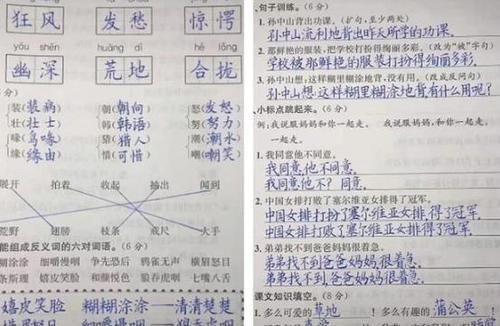 狂风 发愁 惊愕
yōu shēn huāng dì hé lǒng
幽深 荒地 合拢
装(装病) 朝(朝向) 怒(发怒)
壮(壮士) 韩(韩语) 努(努力)
喙(鸟喙) 猎(猎人) 潮(潮水)
缘(缘由) 惜(可惜) 嘲(嘲笑)
展开 拍着 收起 抽出 闻到
荒野 翅膀 枝条 戒尺 火手
能组成反义词的六对词语。(6分)
糊涂涂 细嚼慢咽 争先恐后 鸦雀无声 横眉怒目
条斯理 嬉皮笑脸 和颜悦色 狼吞虎咽 七嘴八舌
嬉皮笑脸 糊糊涂涂——清清楚楚
句子训练。(6分)
1. 孙中山背出功课。(扩句,至少两处)
孙中山流利地背出昨天所学的功课.
2. 那鲜艳的服装,把学校打扮得绚丽多彩。(改为“被”字句)
学校被那鲜艳的服装打扮得绚丽多彩.
3. 孙中山想,这样糊里糊涂地背,没有用。(改成反问句)
孙中山想:这样糊里糊涂地背有什么用呢?
小标点跳起来。(6分)
例:我说服妈妈和你一起走。 我说服妈妈,和你一起走。
一起走。
1. 我同意他不同意。
我同意,他不同意.
我同意他不?同意.
2. 中国女排打败了塞尔维亚女排得了冠军。
中国女排打扮了塞尔维亚女排,得了冠军.
中国女排打败了,塞尔维亚女排得了冠军.
3. 弟弟找不到爸爸妈妈很着急。
弟弟找不到爸爸,妈妈很着急.
弟弟找不到爸爸妈妈,很着急.
课文知识填空。(8分)
1. 多么可爱的草地! 多么有趣的蒲公英